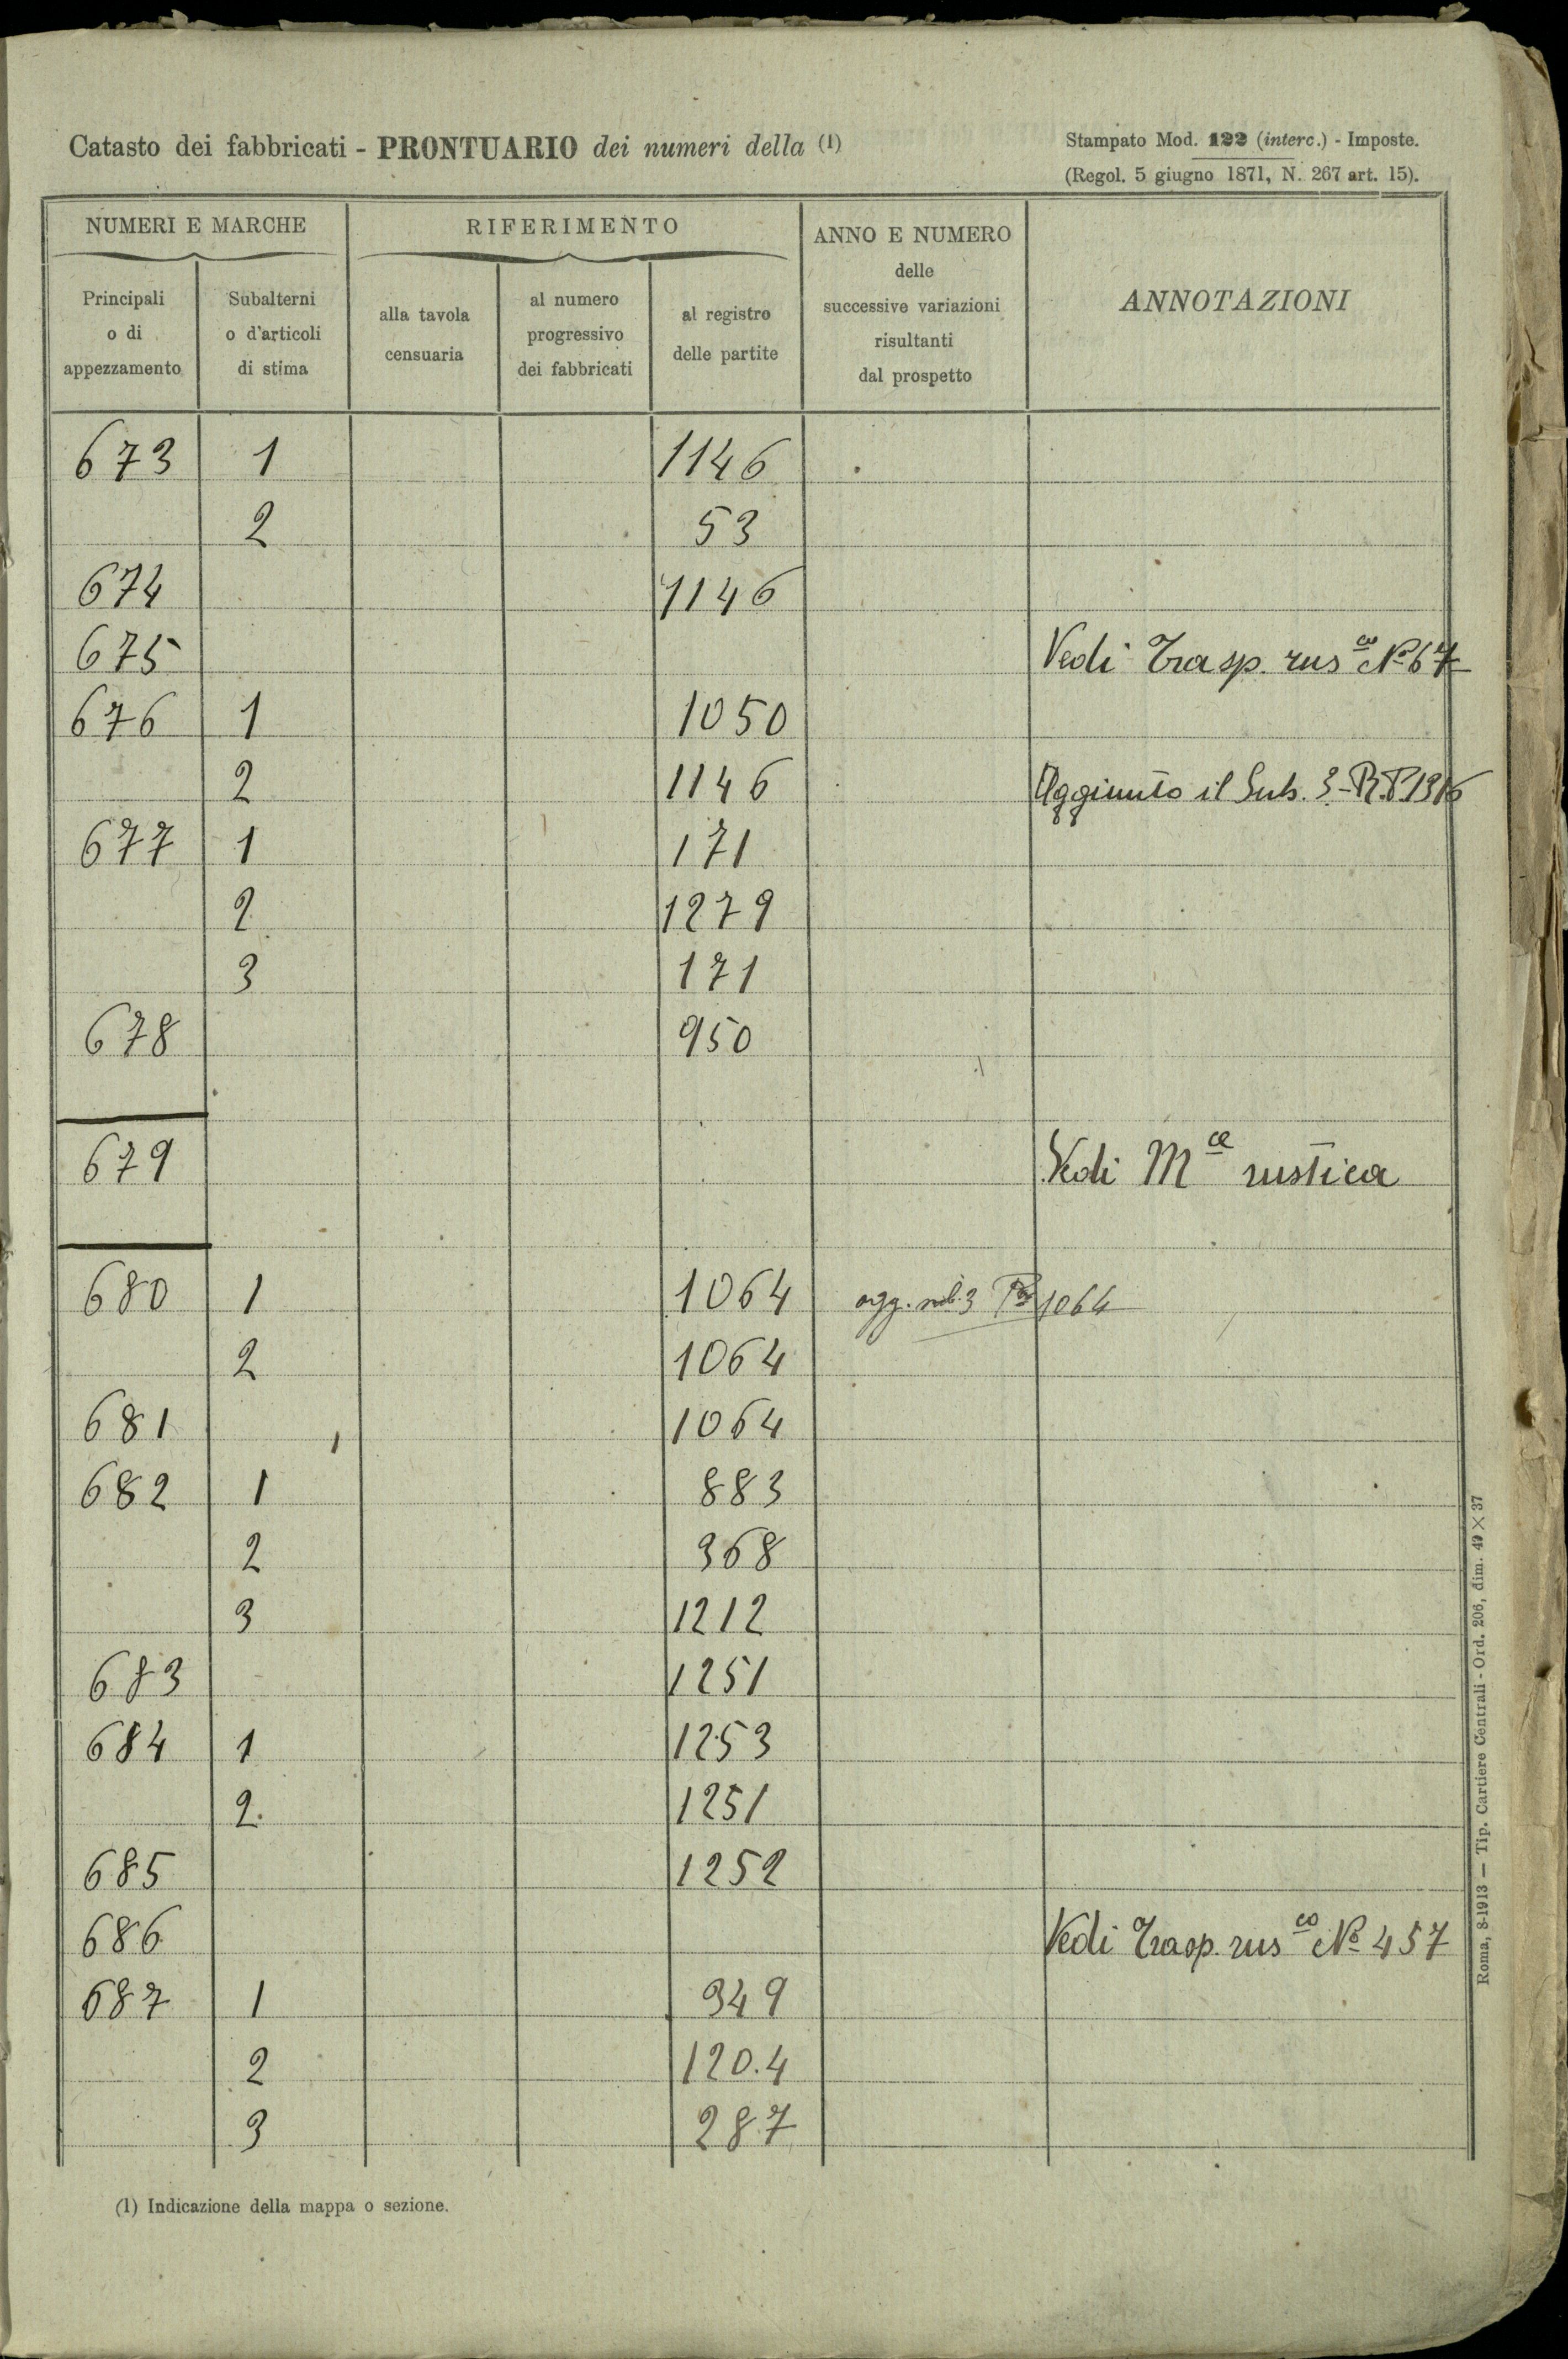 Catasto dei fabbricati - PRONTUARIO dei numeri della (1)
Stampato Mod. 122 (interc.) - Imposte.
(Regol. 5 giugno 1871, N. 267 art. 15).
NUMERI E MARCHE
RIFERIMENTO
ANNO E NUMERO
delle
successive variazioni
risultanti
dal prospetto
ANNOTAZIONI
Principali
o di
appezzamento
Subalterni
o d'articoli
di stima
alla tavola
censuaria
al numero
progressivo
dei fabbricati
al registro
delle partite
673 1 1146
2 53
674 1146
675 Vedi Trasp. rus co No 67
676 1 1050
2 1146 Aggiunto il Sub. 3 - R.P. 1316
677 1 171
2 1279
3 171
678 950
679 Vedi Mce rustica
680 1 1064 agg. sub. 3 1064
2 1064
681 1064
682 1 883
2 368
3 1212
683 1251
684 1 1253
2. 1251
685 1252
686 Vedi Trasp. rus co No 457
687 1 349
2 120.4
3 287
(1) Indicazione della mappa o sezione.
Roma, 8-1913 — Tip. Cartiere Centrali - Ord. 206, dim. 49 × 37